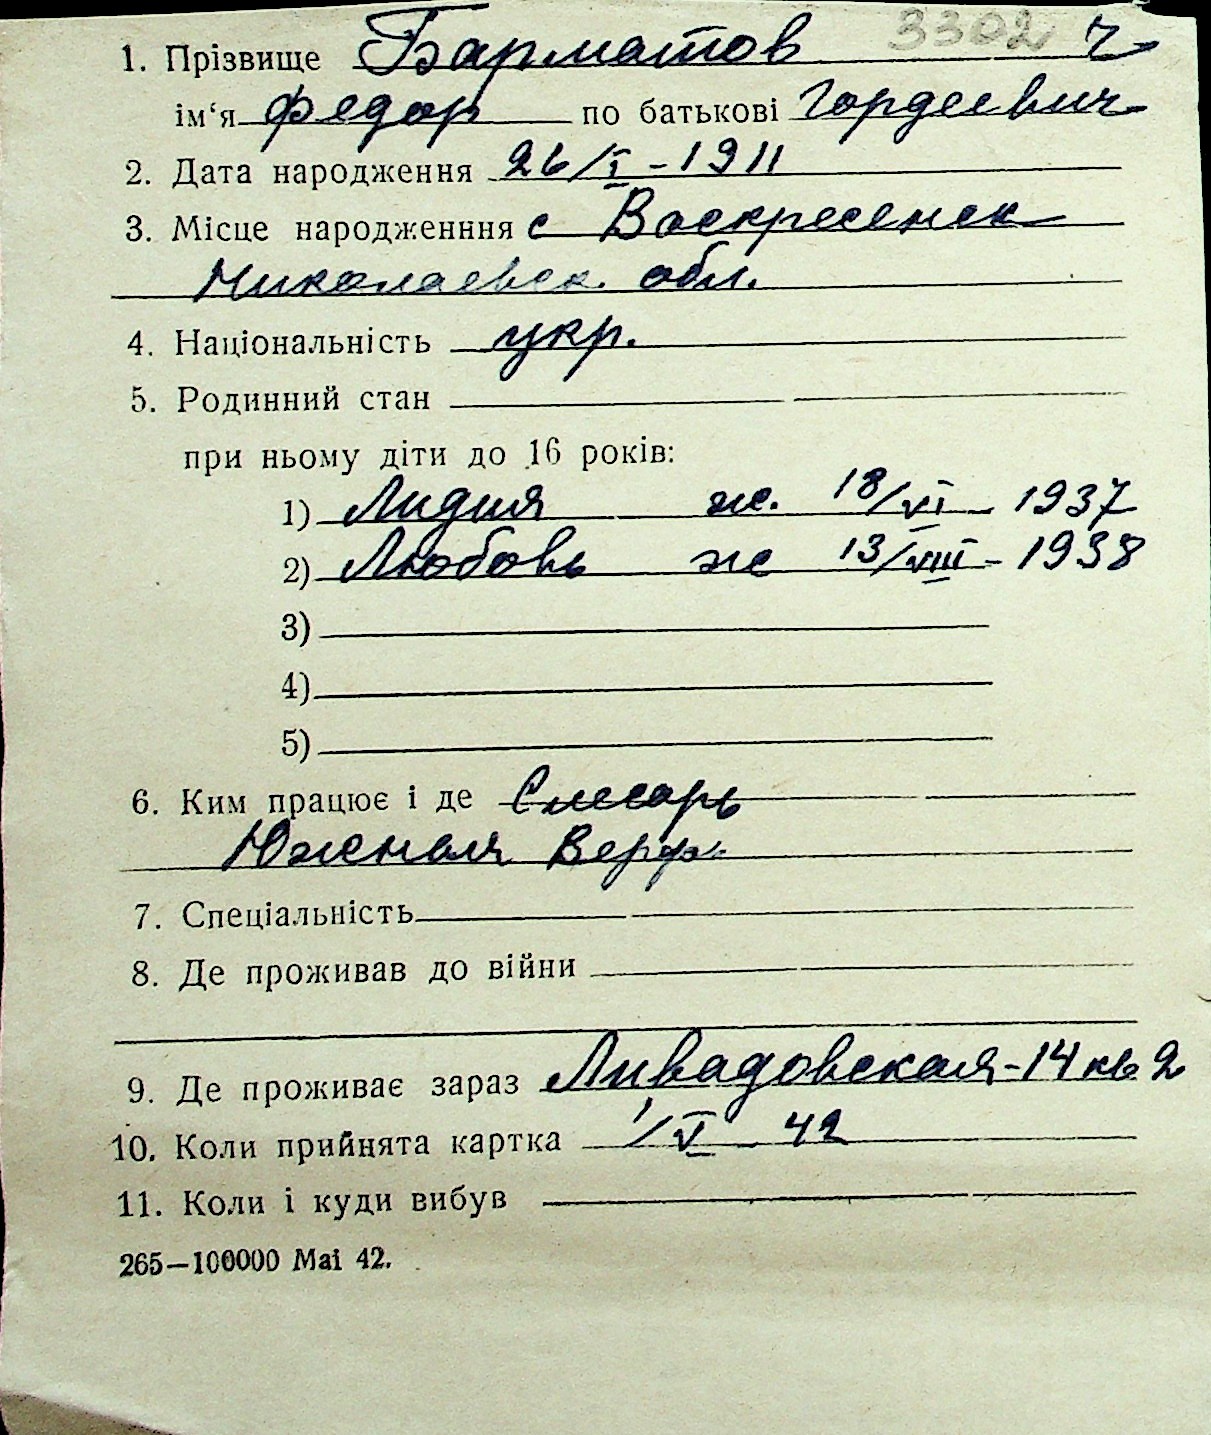 3302 ч
1. Прізвище Барматов
ім‘я Федор по батькові Гордеевич
2. Дата народження 26/I - 1911
3. Місце народженння с Воскресенск
Николаевск. обл.
4. Національність укр.
5. Родинний стан
при ньому діти до 16 років:
1) Лидия ж. 18/VI - 1937
2) Любовь ж 13/VIII - 1938
3)
4)
5)
6. Ким працює і де Слесарь
Юженая Верф.
7. Спеціальність
8. Де проживав до війни
9. Де проживає зараз Ливадовская-14 кв 2
10. Коли прийнята картка 1/V 42
11. Коли і куди вибув
265—100000 Mai 42.